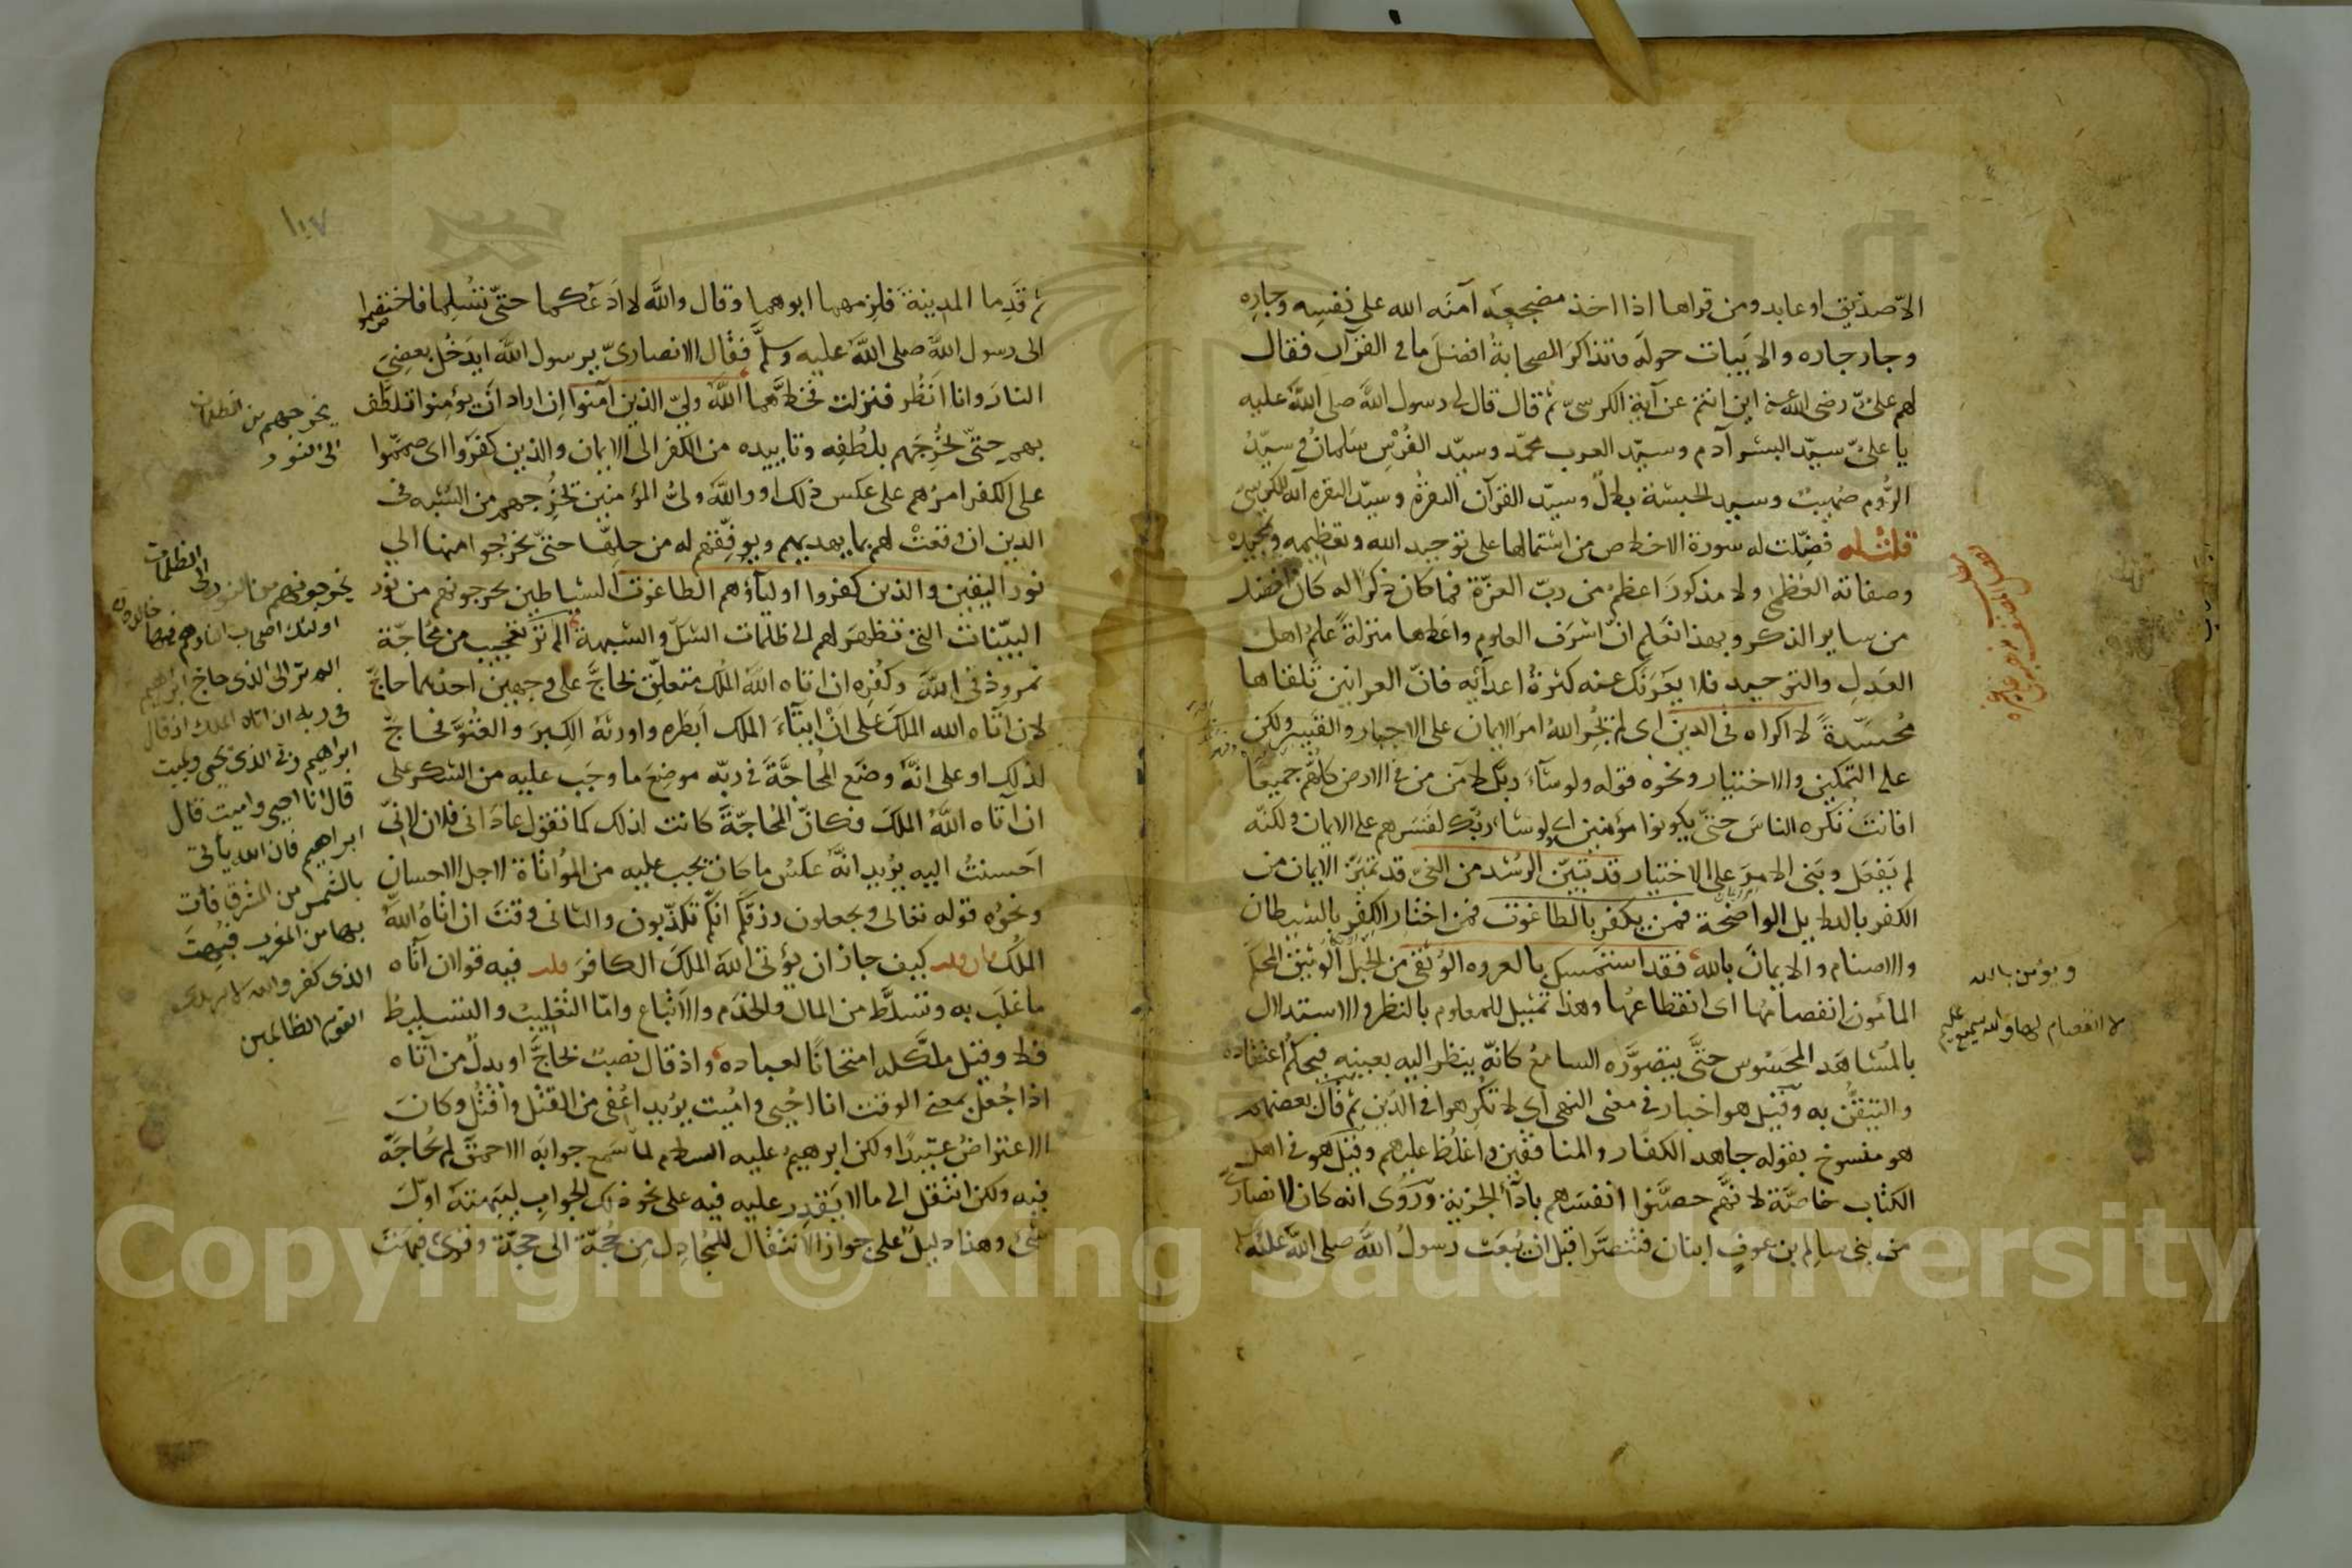 الا صديق او عابد ومن قراها اذا اخذ مضجعه آمنه الله على نفسه وجاره
وجار جاره والابيات حوله وتذاكر الصحابة افضل ما في القرآن فقال
لهم علىّ رضى الله عنه اين انتم عن آية الكرسىّ ثم قال قال لى رسول الله صلى الله عليه
يا علىّ سيّد البشر آدم وسيّد العرب محمّد وسيّد الفُرْس سَلمانُ وسيّدُ
الرُّوم صُهيبٌ وسيد الحبشة بلالٌ وسيّد القرآن البقرةُ وسيّد البقره آية الكرسىّ
فضّلت له سورة الاخلاص من اشتمالها على توحيد الله وتعظيمه وتمجيده
وصفاته العُظمى ولا مذكورَ اعظمُ من ربّ العزّة فما كان ذكرًا له كان افضل
من ساير الذكر وبهذا تعلم انّ اشرَف العلوم واعلاها منزلةً علمُ اهل
العَدلِ والتوحيد فلا يغرّنّك عنه كثرةُ اعدآئه فانّ العرانين تَلقاها
مُحسّدةً لا اكراه فى الدين اى لم يُجْرِ اللهُ امرَ الايمان على الاجبار والقَسر ولكن
على التمكين والاختيار ونحوه قوله ولو شآءَ ربّك لآمن من فى الارض كلّهم جميعًا
افانت تُكره الناسَ حتّى يكونوا مؤمنين اى لو شاء ربّك لقَسَرهم على الايمان ولكنّه
لم يَفعَل وبَنى الامرَ على الاختيار قد تبيّن الرُشد من الغىّ قد تميّز الايمان من
الكفر بالدلايل الواضحة فمن يكفر بالطاغوت فمن اختار الكفر بالشيطان
والاصنام والايمانَ بالله فقد استمسك بالعروه الوُثقى من الحَبل الوَثيق المحكم
المأمون انفصامُها اى انقطاعُها وهذا تمثيل للمعلوم بالنظر والاستدلال
بالمُشاهَد المحسُوس حتّى يتصوّره السامعُ كانّه ينظر اليه بعينه فيحكمُ اعتقاده
والتيقّنُ به وقيل هو اخبار فى معنى النهى اى لا تُكرِهوا فى الدين ثم قال بعضهم
هو منسوخ بقوله جاهد الكفّار والمنافقين واغلُظ عليهم وقيل هو فى اهل
الكتاب خاصّةً لانّهم حصّنوا انفسَهم باداء الجزية ورُوى انه كان لانصارىّ
من بنى سالم بن عوفٍ ابنان فتنصّرا قبل ان يُبعَث رسولُ الله صلى الله عليه
ويؤمن بالله
لا انفصام لها والله سميع عليم
ثم قَدِما المدينةَ فلزمهما ابوهما وقال والله لا ادَعُكما حتّى تُسْلِما فاختصموا
الى رسول الله صلى الله عليه وسلّم فقال الانصارىّ يرسول الله ايدخُل بعضى
النارَ وانا انظُر فنزلت فخلّاهما اللهُ وليّ الذين آمنوا ان اراد ان يؤمنوا تلطّف
بهم حتّى يُخْرجَهم بلطُفه وتاييده من الكفر الى الايمان والذين كفرَوا اى صمّموا
على الكفر امرُهم على عكس ذلك او والله ولىُّ المؤمنين يُخْرِجهم من الشبه فى
الدين ان وقعتْ لهم بما يهديهم ويوفّقهم له من حلّها حتّى يخرُجوا منها الى
نور اليقين والذين كفروا اولياؤهم الطاغوت الشياطين يخرجونهم من نور
البيّنات التى تظهر لهم الى ظلمات الشكّ والشبهة الم تر تعجيب من مُحاجّة
نمروذ فى الله وكُفره ان اتاه اللهُ المُلك متعلّق بحاجّ على وجهين احدهما حاجّ
لان آتاه الله الملكَ على انّ ايتآءَ الملك اَبطَره واورثه الكِبرَ والعُتوَّ فحاجّ
لذلك او على انّه وضَع المُحاجّةَ فى ربّه موضعَ ما وجَب عليه من الشكر على
ان اتاه اللهُ الملكَ فكانّ المُحاجّةَ كانت لذلك كما تقول عادَانى فلان لانّى
احسنتُ اليه يُريد انّه عكسُ ما كان يجب عليه من المُوالاة لاجل الاحسان
ونحوُه قوله تعالى وتجعلون رزقكم انّكم تكذّبون والثانى وقت ان اتاهُ اللهُ
الملكَ فان قلت كيف جاز ان يُؤتى اللهُ الملكَ الكافرَ قلت فيه قولان آتاه
ما غلَب به وتسلّط من المال والخدَم والاَتْباع وامّا التغليبُ والتسليط
فلا وقيل ملّكه امتحانًا لعباده واذ قال نصبٌ بحاجّ او بدلٌ من آتاه
اذا جُعل بمعنى الوقت انا احْيى واميت يريد اعْفى من القتل واقتُل وكان
الاعتراضُ عتيدًا ولكن ابرهيمُ عليه السلام لما سَمع جوابَه الاحمقَ لم يُحاجّه
فيه ولكن انتقل الى ما لا يَقدِر عليه فيه على نحو ذلك الجواب ليَبهَته اوّلَ
شئ وهذا دليلٌ على جواز الانتقال للمُجادِل من حُجّة الى حجّة وقرئ فبهَتَ
يخرجهم من الظلمات
الى النور
يخرجونهم من النور الى الظلمات
اولئك اصحاب النار هم فيها خالدون
الم تر الى الذى حاج ابراهيم
فى ربه ان اتاه الملك اذ قال
ابراهيم ربى الذى يحيى ويميت
قال انا احيى واميت قال
ابراهيم فان الله يأتى
بالشمس من المشرق فأت
بها من المغرب فبُهِتَ
الذى كفر والله لا يهدى
القوم الظالمين
١٠٧
Copyright © King Saud University